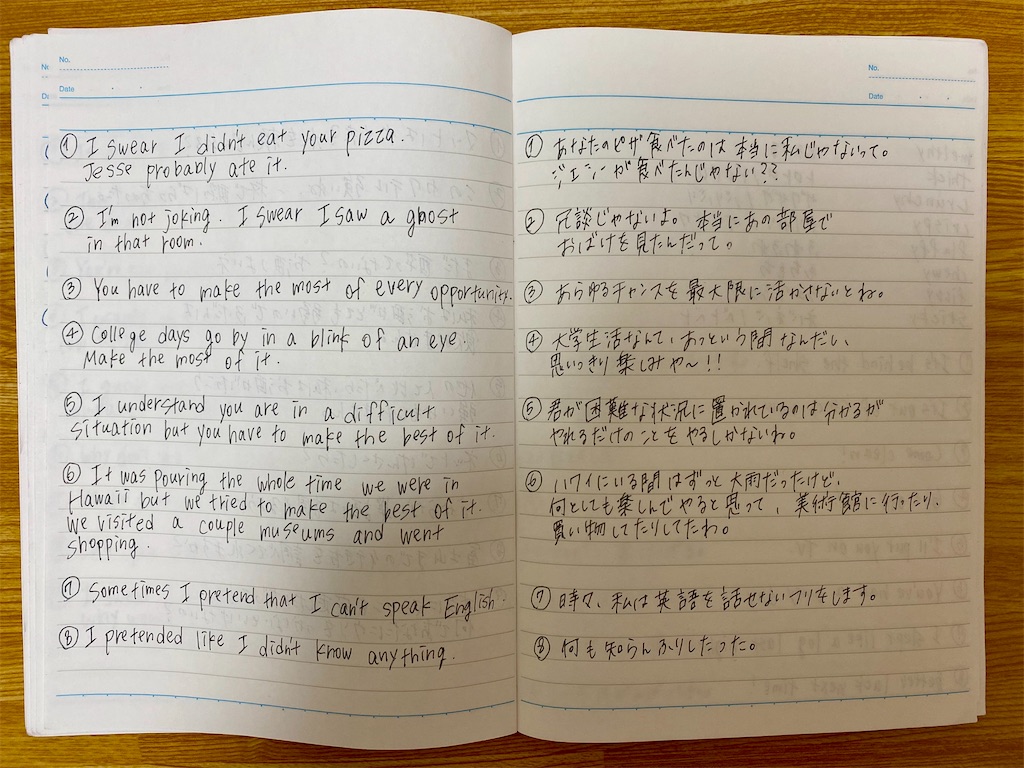 No.
Date
① I swear I didn't eat your pizza.
Jesse probably ate it.
② I'm not joking. I swear I saw a ghost
in that room.
③ You have to make the most of every opportunity.
④ College days go by in a blink of an eye.
Make the most of it.
⑤ I understand you are in a difficult
situation but you have to make the best of it.
⑥ It was pouring the whole time we were in
Hawaii but we tried to make the best of it.
We visited a couple museums and went
shopping.
⑦ Sometimes I pretend that I can't speak English.
⑧ I pretended like I didn't know anything.
No.
Date
① あなたのピザ食べたのは本当に私じゃないって。
ジェシーが食べたんじゃない??
② 冗談じゃないよ。本当にあの部屋で
おばけを見たんだって。
③ あらゆるチャンスを最大限に活かさないとね。
④ 大学生活なんて、あっという間なんだし、
思いっきり楽しみや〜!!
⑤ 君が困難な状況に置かれているのは分かるが
やれるだけのことをやるしかないね。
⑥ ハワイにいる間はずっと大雨だったけど、
何としても楽しんでやると思って、美術館に行ったり、
買い物したりしてたわ。
⑦ 時々、私は英語を話せないフリをします。
⑧ 何も知らんふりしたった。